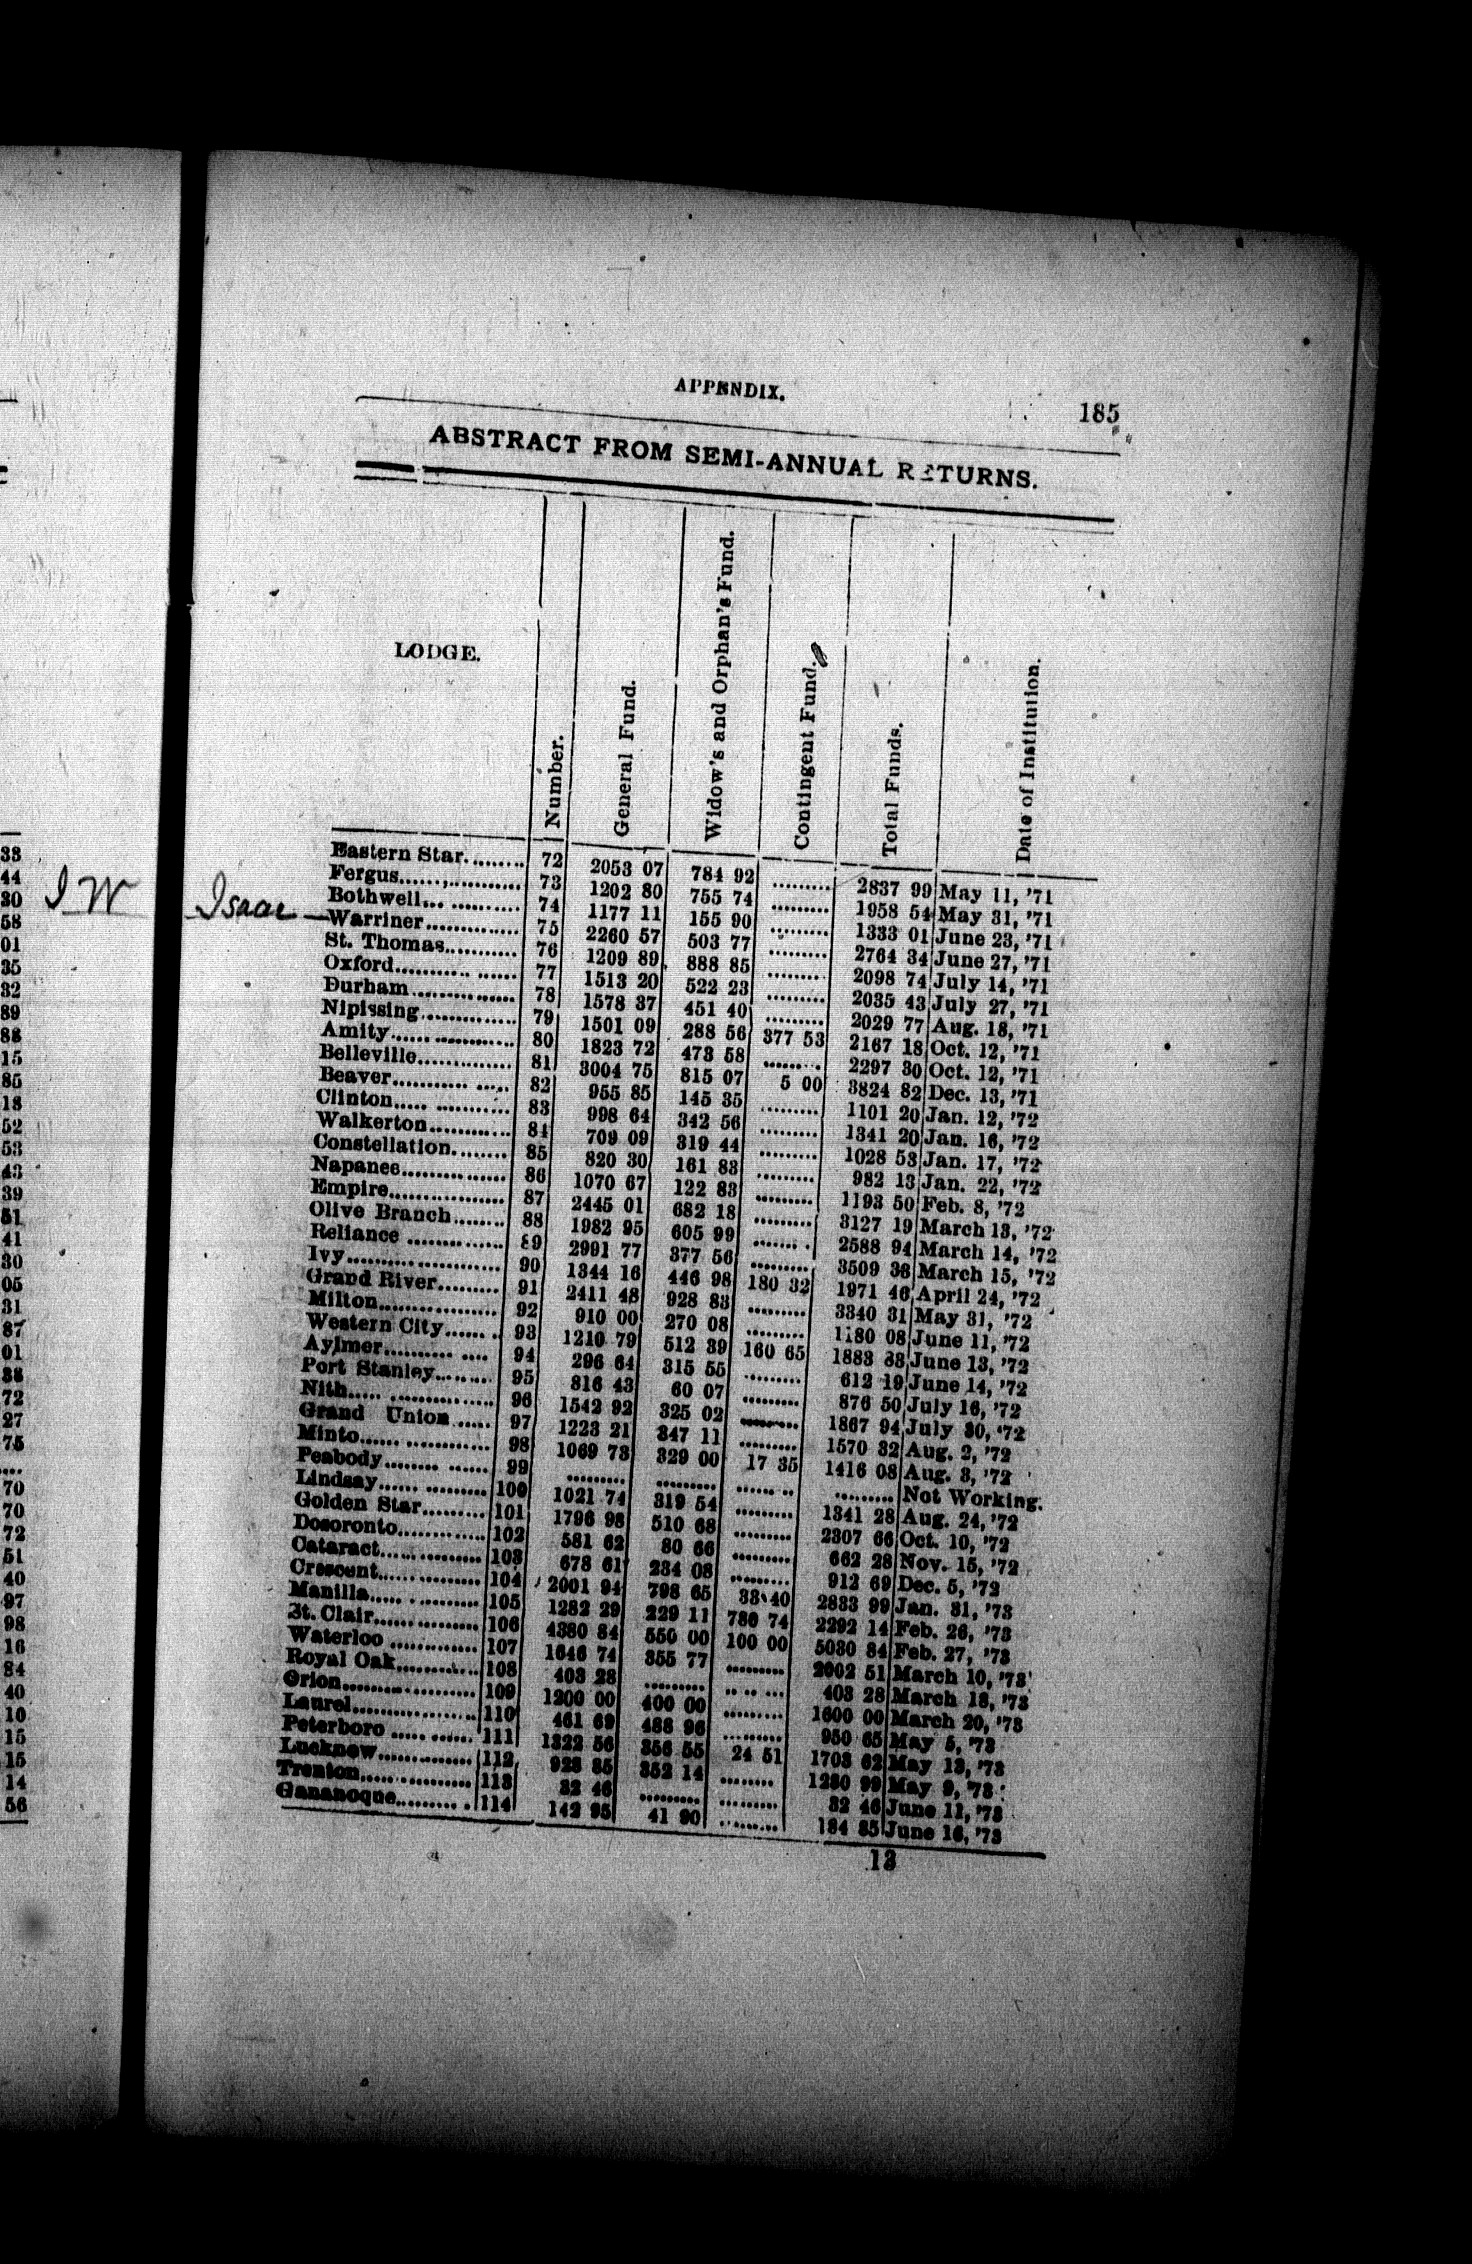 38
44
30
58
01
35
32
89
88
15
85
18
52
53
43
39
51
41
30
05
31
87
01
38
72
27
75
....
70
70
72
51
40
97
98
16
84
40
10
15
15
14
56
I W Isaac
APPENDIX.
185
ABSTRACT FROM SEMI-ANNUAL RETURNS.
LODGE. Number. General Fund. Widow's and Orphan's Fund. Contingent Fund. Total Funds. Date of Institution.
Eastern Star......... 72 2053 07 784 92 ......... 2837 99 May 11, '71
Fergus............... 73 1202 80 755 74 ......... 1958 54 May 31, '71
Bothwell............. 74 1177 11 155 90 ......... 1333 01 June 23, '71
Warriner............. 75 2260 57 503 77 ......... 2764 34 June 27, '71
St. Thomas........... 76 1209 89 888 85 ......... 2098 74 July 14, '71
Oxford............... 77 1513 20 522 23 ......... 2035 43 July 27, '71
Durham............... 78 1578 37 451 40 ......... 2029 77 Aug. 18, '71
Nipissing............ 79 1501 09 288 56 377 53 2167 18 Oct. 12, '71
Amity................ 80 1823 72 473 58 ......... 2297 30 Oct. 12, '71
Belleville........... 81 3004 75 815 07 5 00 3824 82 Dec. 13, '71
Beaver............... 82 955 85 145 35 ......... 1101 20 Jan. 12, '72
Clinton.............. 83 998 64 342 56 ......... 1341 20 Jan. 16, '72
Walkerton............ 84 709 09 319 44 ......... 1028 53 Jan. 17, '72
Constellation........ 85 820 30 161 83 ......... 982 13 Jan. 22, '72
Napanee.............. 86 1070 67 122 83 ......... 1193 50 Feb. 8, '72
Empire............... 87 2445 01 682 18 ......... 3127 19 March 13, '72
Olive Branch........ 88 1982 95 605 99 ......... 2588 94 March 14, '72
Reliance ............ 89 2991 77 377 56 ......... 3509 36 March 15, '72
Ivy.................. 90 1344 16 446 98 180 32 1971 46 April 24, '72
Grand River......... 91 2411 48 928 83 ......... 3340 31 May 31, '72
Milton............... 92 910 00 270 08 ......... 1180 08 June 11, '72
Western City........ 93 1210 79 512 39 160 65 1883 83 June 13, '72
Aylmer............... 94 296 64 315 55 ......... 612 19 June 14, '72
Port Stanley........ 95 816 43 60 07 ......... 876 50 July 16, '72
Nith................. 96 1542 92 325 02 ......... 1867 94 July 30, '72
Grand Union ..... 97 1223 21 347 11 ......... 1570 32 Aug. 2, '72
Minto................ 98 1069 73 329 00 17 35 1416 08 Aug. 3, '72
Peabody.............. 99 ......... ......... ......... ......... Not Working.
Lindsay.............. 100 1021 74 319 54 ......... 1341 28 Aug. 24, '72
Golden Star......... 101 1796 98 510 68 ......... 2307 66 Oct. 10, '72
Desoronto............ 102 581 62 80 66 ......... 662 28 Nov. 15, '72
Cataract............. 103 678 61 234 08 ......... 912 69 Dec. 5, '72
Crescent............. 104 2001 94 798 65 33 40 2833 99 Jan. 31, '73
Manilla.............. 105 1282 29 229 11 780 74 2292 14 Feb. 26, '73
St. Clair............ 106 4380 84 550 00 100 00 5030 84 Feb. 27, '73
Waterloo ............ 107 1646 74 355 77 ......... 2002 51 March 10, '73
Royal Oak............ 108 403 28 ......... ......... 403 28 March 18, '73
Orion................ 109 1200 00 400 00 ......... 1600 00 March 20, '73
Laurel............... 110 461 69 488 96 ......... 950 65 May 5, '73
Peterboro ........... 111 1322 56 356 55 24 51 1703 62 May 13, '73
Lucknow.............. 112 928 85 352 14 ......... 1280 99 May 9, '73
Trenton.............. 113 32 46 ......... ......... 32 46 June 11, '73
Gananoque............ 114 142 95 41 90 ......... 184 85 June 16, '73
13